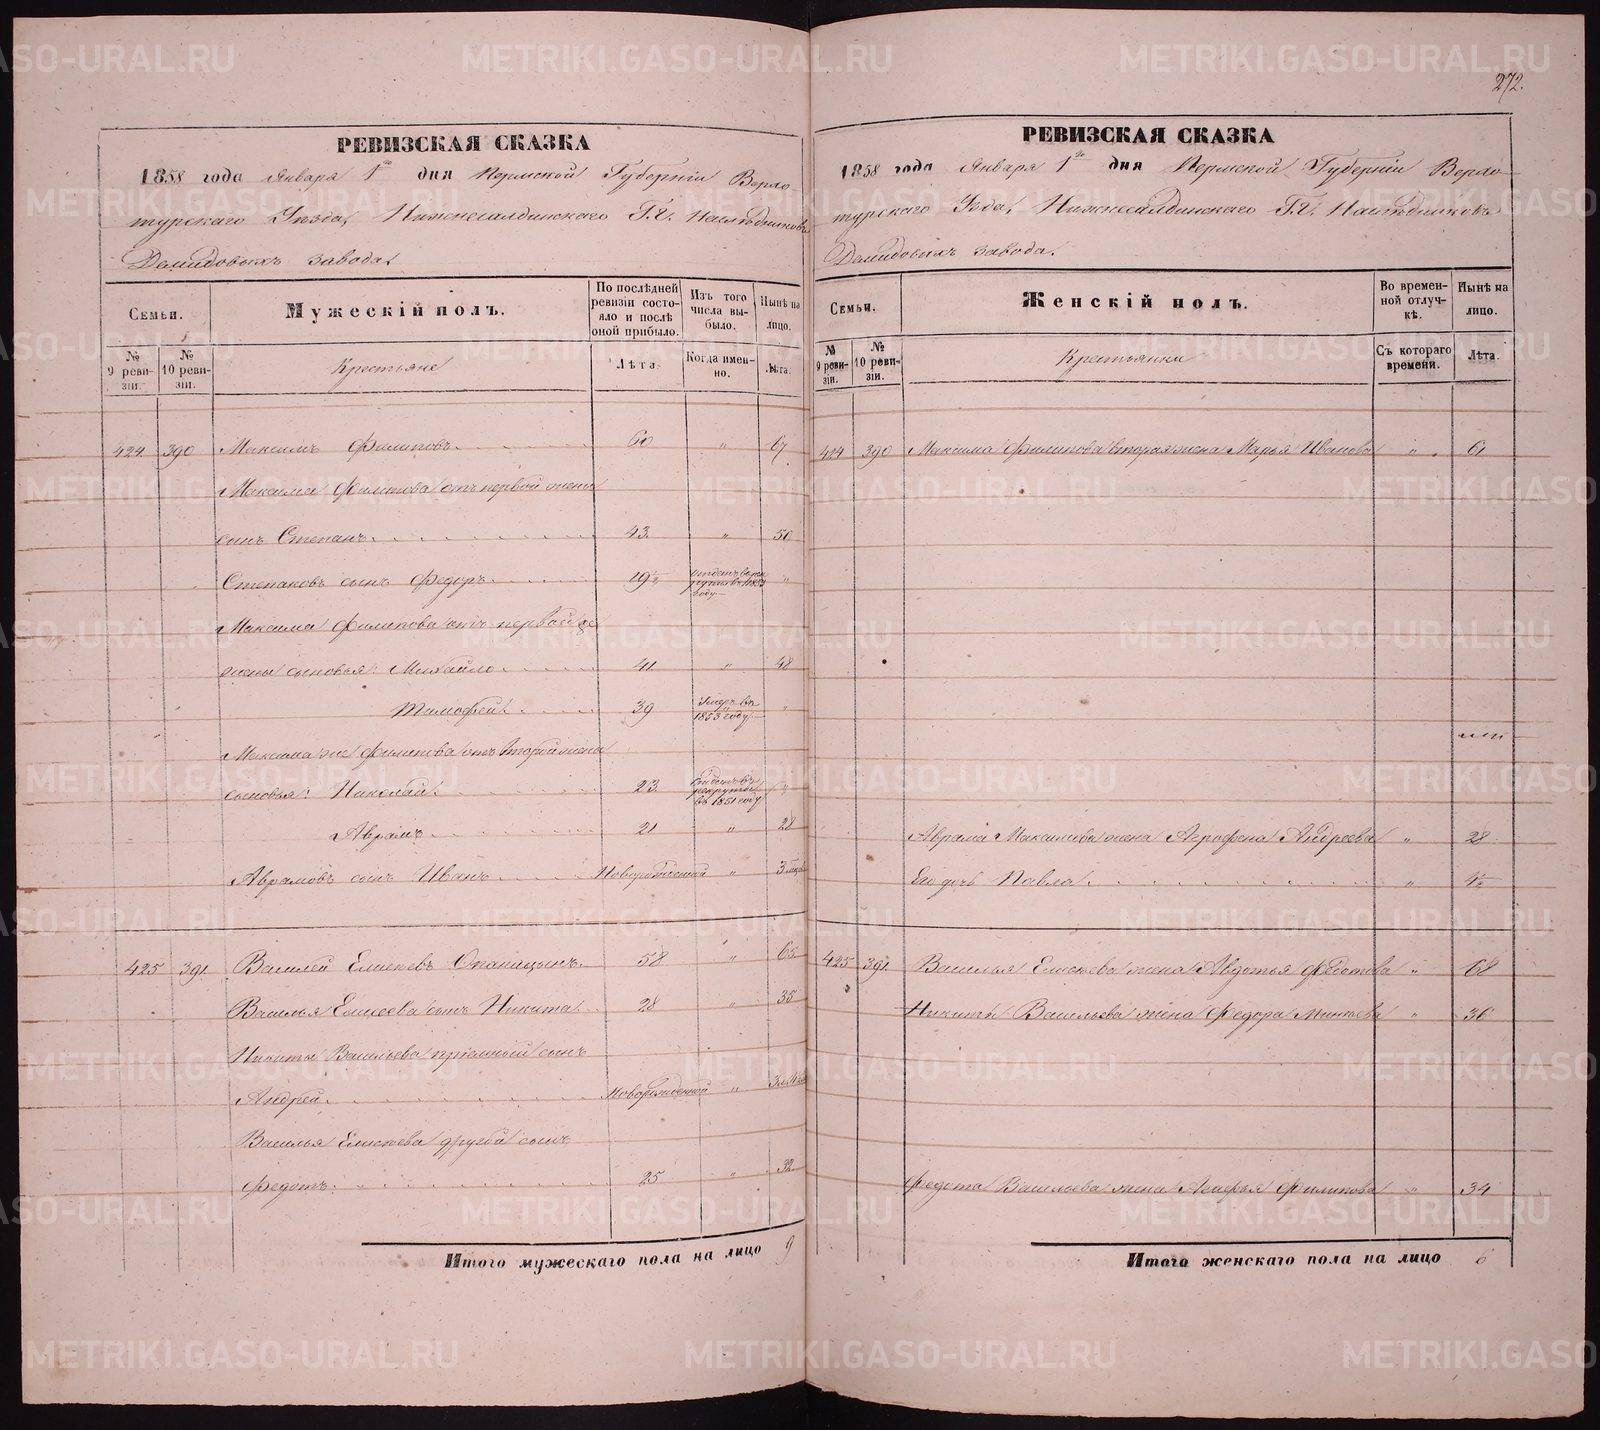 272.
РЕВИЗСКАЯ СКАЗКА
1858 года Января 1го дня Пермской Губерніи Верхо
турскаго Уѣзда, Нижнесалдинскаго Г.г. Наслѣдниковъ
Демидовыхъ завода.
Семьи.
Мужескій полъ.
По послѣдней ревизіи состояло и послѣ оной прибыло.
Изъ того числа выбыло.
Нынѣ на лицо.
№ 9 ревизіи.
№ 10 ревизіи.
Крестьяне
Лѣта.
Когда именно.
Лѣта.
424. 390 Максимъ Филиповъ 60 " 67
Максима Филипова отъ первой жены
сынъ Степанъ 43. " 50
Степановъ сынъ Федоръ 19½ Отданъ въ рекруты въ 1853 году "
Максима Филипова отъ первой же
жены сыновья: Михайло 41 " 48
Тимофей 39 Умеръ въ 1853 году "
Максима же Филипова отъ второй жены
сыновья: Николай 23 Отданъ въ рекруты въ 1851 году "
Аврамъ 21 " 28
Аврамовъ сынъ Иванъ Новорожденной " 3
425 391. Василей Елисеевъ 58 " 65
Василья Елисеева сынъ Никита 28 " 35
Никиты Васильева пріемный сынъ
Андрей Новорожденной "
Василья Елисеева другой сынъ
Федотъ 25 " 32
Итого мужескаго пола на лицо 9
РЕВИЗСКАЯ СКАЗКА
1858 года Января 1го дня Пермской Губерніи Верхо
турскаго Уѣзда, Нижнесалдинскаго Г.г. Наслѣдниковъ
Демидовыхъ завода.
Семьи.
Женскій полъ.
Во временной отлучкѣ.
Нынѣ на лицо.
№ 9 ревизіи.
№ 10 ревизіи.
Крестьянки
Съ котораго времени.
Лѣта.
424 390 Максима Филипова вторая жена Марья Иванова " 61
Аврама Максимова жена Агрофена Андреева " 28
Его дочь Павла " 4½
425 391. Василья Елисеева жена Авдотья Федотова " 68
Никиты Васильева жена Федора Минеева " 36
Федота Васильева жена Агафья Филипова " 34
Итого женскаго пола на лицо 6
METRIKI.GASO-URAL.RU